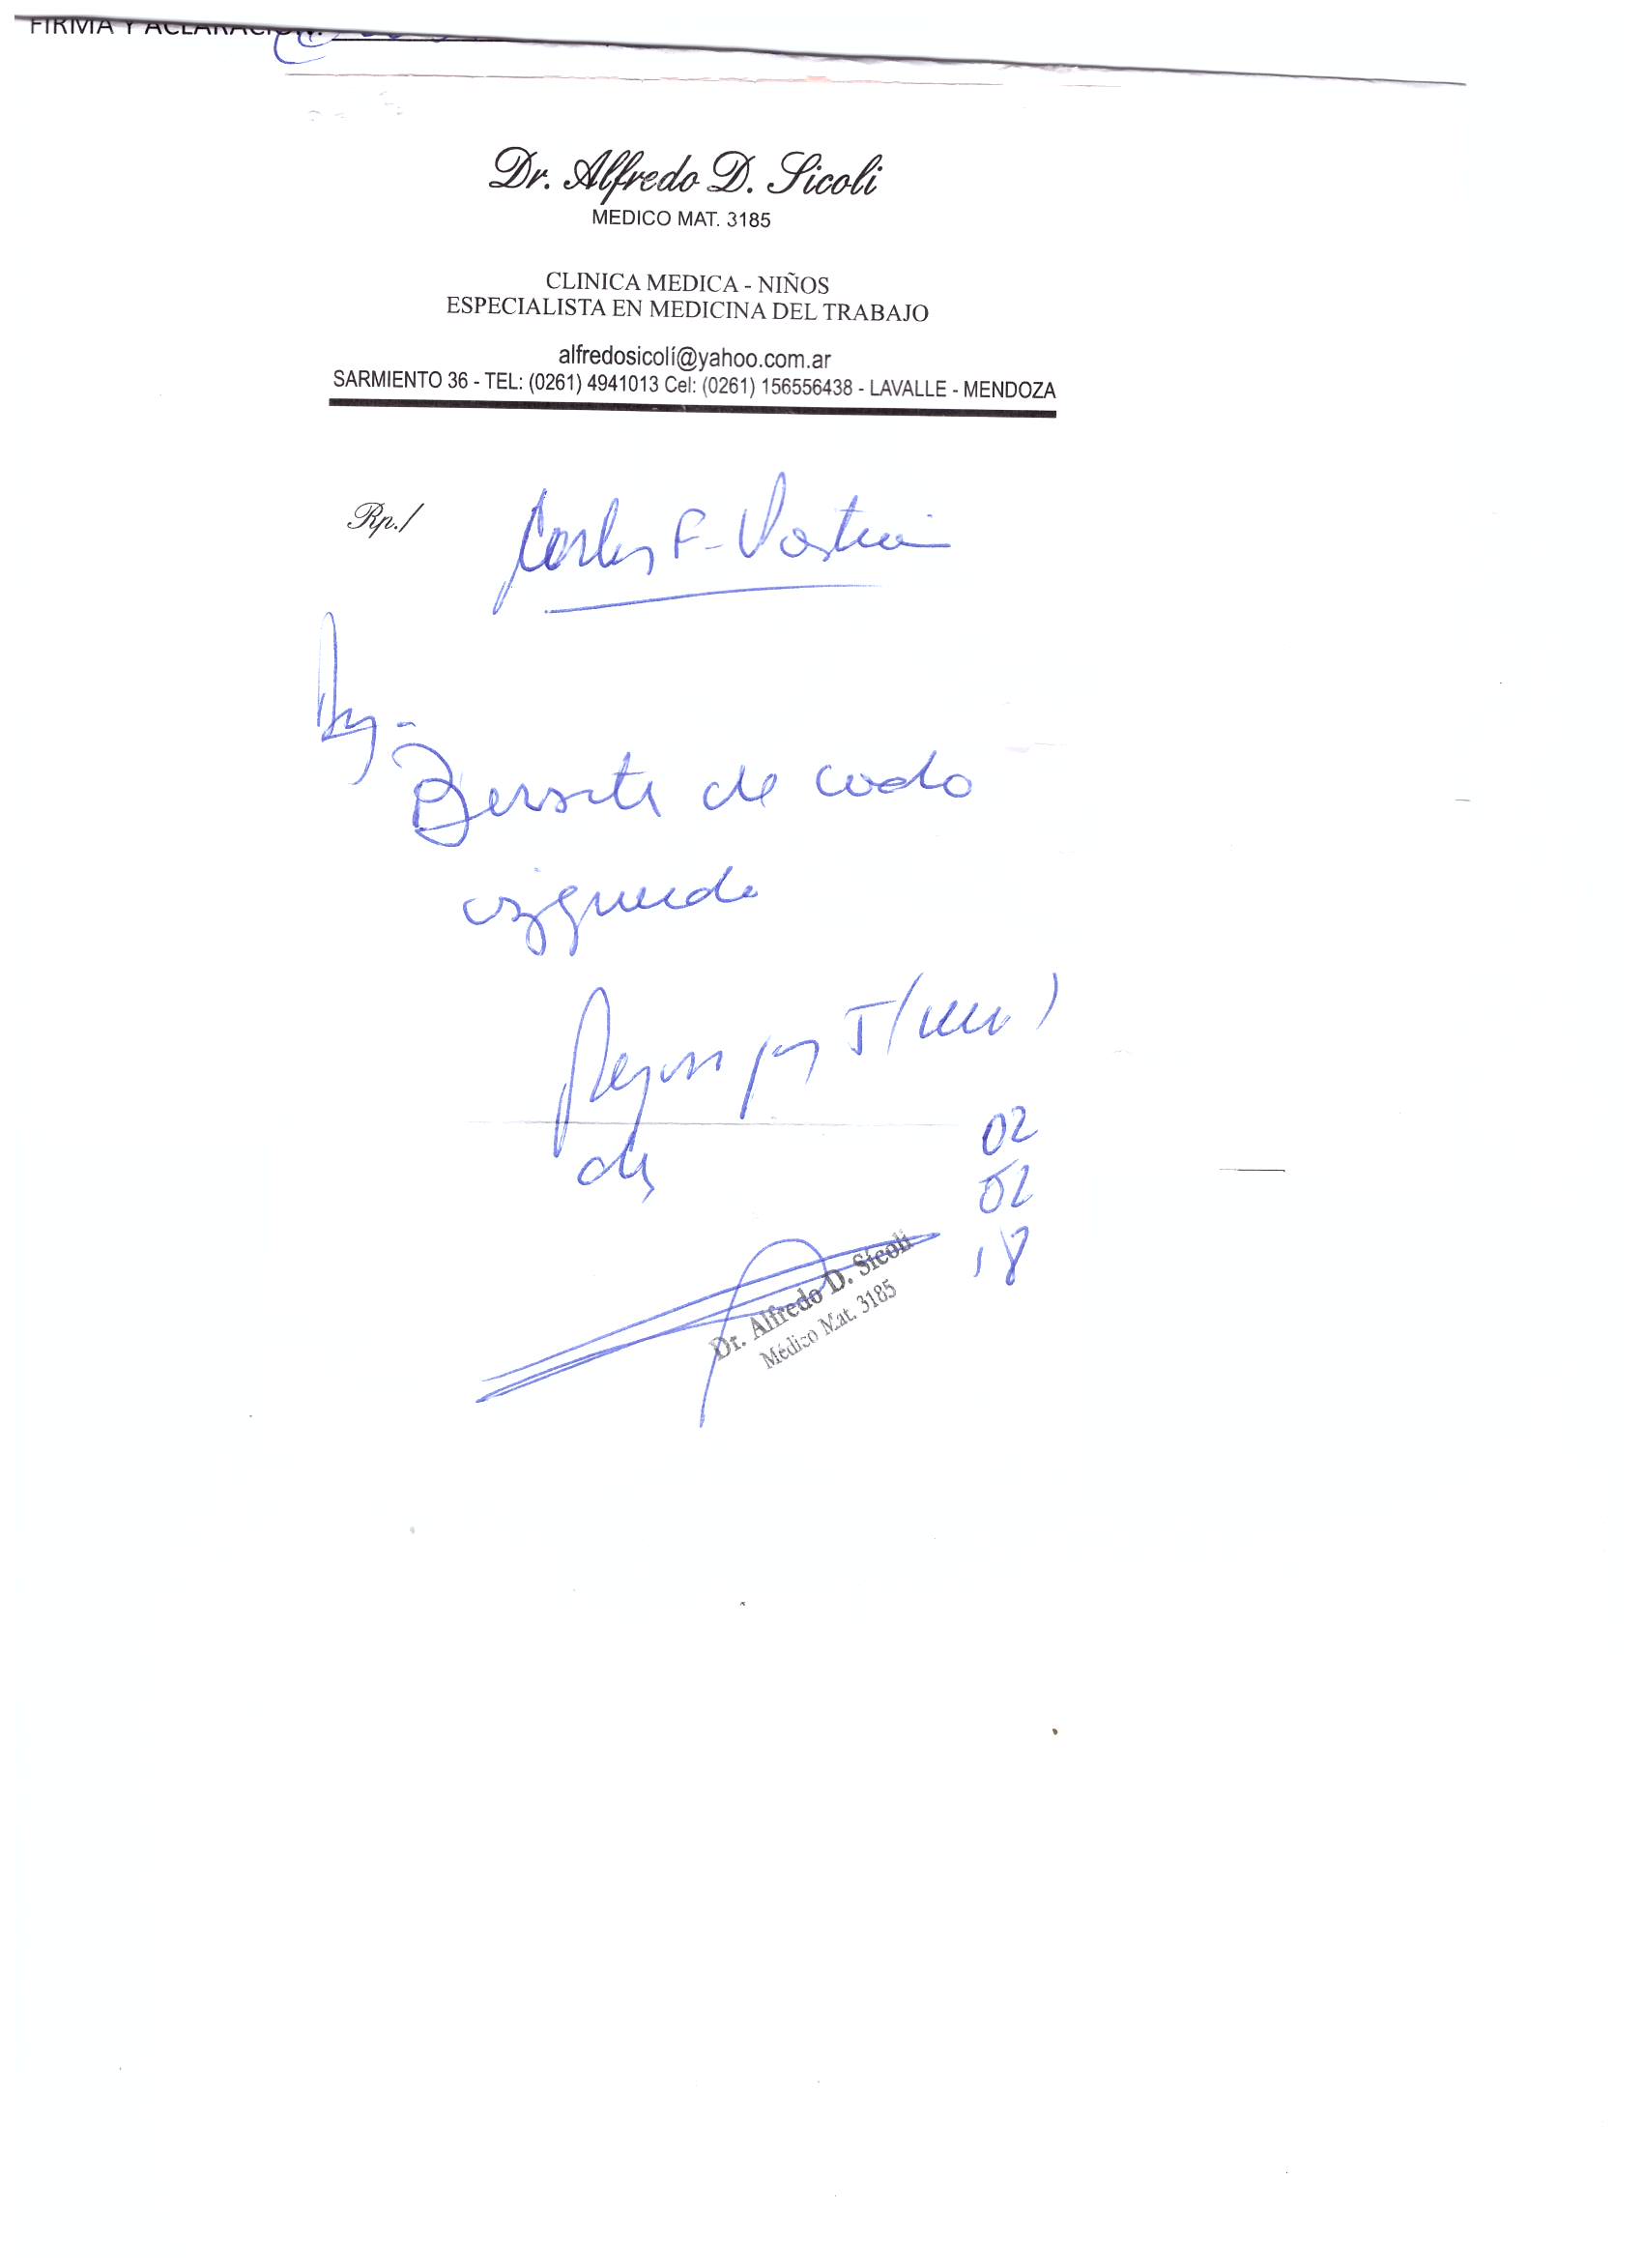 FIRMA Y ACLARACION:
Dr. Alfredo D. Sicoli
MEDICO MAT. 3185
CLINICA MEDICA - NIÑOS
ESPECIALISTA EN MEDICINA DEL TRABAJO
alfredosicoli@yahoo.com.ar
SARMIENTO 36 - TEL: (0261) 4941013 Cel: (0261) 156556438 - LAVALLE - MENDOZA
Rp./
Carlos F.
de codo
izquierdo
02
02
18
Dr. Alfredo D. Sicoli
Médico Mat. 3185